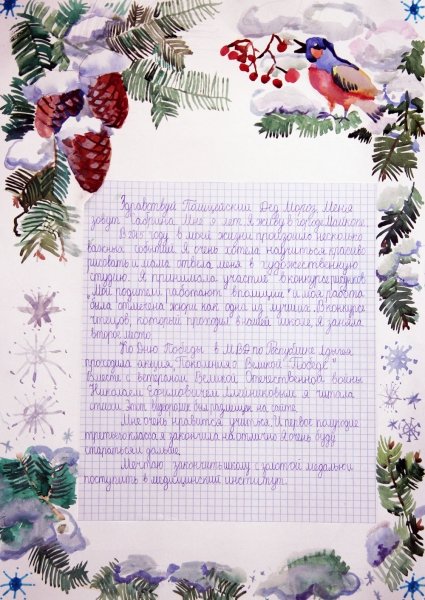 Здравствуй Полицейский Дед Мороз. Меня
зовут Сабрина. Мне 9 лет. Я живу в городе Майкопе.
В 2015 году в моей жизни произошло несколько
важных событий. Я очень хотела научиться красиво
рисовать и мама отвела меня в художественную
студию. Я принимала участие в конкурсе рисунков
"Мои родители работают в полиции" и моя работа
была отмечена жюри как одна из лучших. В конкурсе
чтецов, который проходил в нашей школе, я заняла
второе место.
Ко Дню Победы в МВД по Республике Адыгея
проходила акция "Поколения о Великой Победе".
Вместе с ветераном Великой Отечественной войны
Николаем Ефимовичем я читала
стихи. Этот видеоролик был размещен на сайте.
Мне очень нравится учиться. И первое полугодие
третьего класса я закончила на отлично. Я очень буду
стараться и дальше.
Мечтаю закончить школу с золотой медалью и
поступить в медицинский институт.